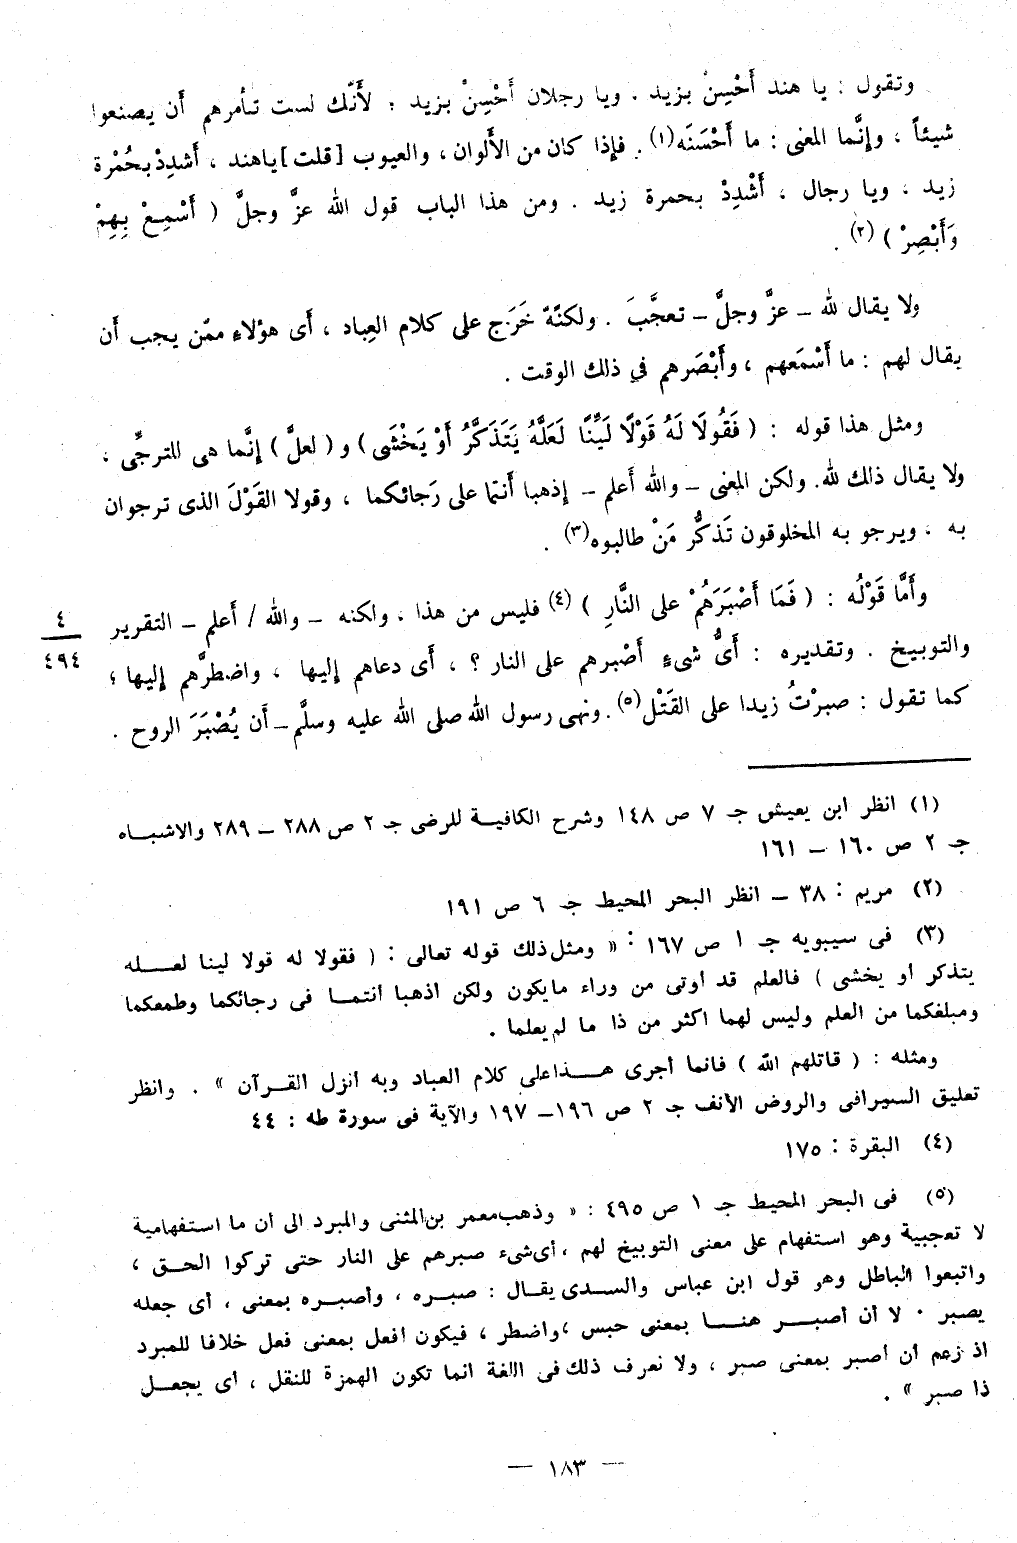 وتقول : يا هند أَحْسِنْ بزيد ، ويا رجلان أَحْسِنْ بزيد ؛ لأَنَّك لست تأمرهم أَن يصنعوا
شيئاً ، وإِنَّما المعنى : ما أَحْسَنَه(١) . فإِذا كان من الأَلوان ، والعيوب [قلت] ياهند ، أَشدِدْ بحُمْرة
زيد ، ويا رجال ، أَشْدِدْ بحمرة زيد . ومن هذا الباب قول الله عزَّ وجلَّ ( أَسْمِعْ بِهِمْ
وَأَبْصِرْ ) (٢) .
ولا يقال لله – عزَّ وجلَّ – تعجَّبَ . ولكنَّهُ خَرَج على كلام العِباد ، أَى هؤلاءِ ممّن يجب أَن
يقال لهم : ما أَسْمَعهم ، وأَبْصَرهم فى ذلك الوقت .
ومثل هذا قوله : ( فَقُولَا لَهُ قَوْلًا لَيِّنًا لَعَلَّهُ يَتَذَكَّرُ أَوْ يَخْشَى ) و ( لعلَّ ) إِنَّما هى للترجِّى ،
ولا يقال ذلك لله . ولكن المعنى – والله أَعلم – إِذهبا أَنتما على رَجائكما ، وقولا القَوْلَ الذى ترجوان
به ، ويرجو به المخلوقون تَذكُّر مَنْ طالبوه(٣) .
وأَمَّا قَوْلُه : ( فَمَا أَصْبَرَهُمْ على النَّارِ ) (٤) فليس من هذا ، ولكنه – والله / أَعلم – التقرير
٤
٤٩٤
والتوبيخ . وتقديره : أَىُّ شىءٍ أَصْبرهم على النار ؟ ، أَى دعاهم إِليها ، واضطرَّهم إِليها ؛
كما تقول : صبرْتُ زيدا على القَتْل(٥) . ونهى رسول الله صلى الله عليه وسلَّم – أَن يُصْبَرَ الروح .
(١) انظر ابن يعيش جـ ٧ ص ١٤٨ وشرح الكافية للرضى جـ ٢ ص ٢٨٨ – ٢٨٩ والاشباه
جـ ٢ ص ١٦٠ – ١٦١
(٢) مريم : ٣٨ – انظر البحر المحيط جـ ٦ ص ١٩١
(٣) فى سيبويه جـ ١ ص ١٦٧ : « ومثل ذلك قوله تعالى : ( فقولا له قولا لينا لعله
يتذكر أو يخشى ) فالعلم قد أوتى من وراء مايكون ولكن اذهبا أنتما فى رجائكما وطمعكما
ومبلغكما من العلم وليس لهما أكثر من ذا ما لم يعلما .
ومثله : ( قاتلهم الله ) فانما أجرى هذا على كلام العباد وبه أنزل القرآن » . وانظر
تعليق السيرافى والروض الأنف جـ ٢ ص ١٩٦ – ١٩٧ والآية فى سورة طه : ٤٤
(٤) البقرة : ١٧٥
(٥) فى البحر المحيط جـ ١ ص ٤٩٥ : « وذهب معمر بن المثنى والمبرد الى أن ما استفهامية
لا تعجبية وهو استفهام على معنى التوبيخ لهم ، أى شىء صبرهم على النار حتى تركوا الحق ،
واتبعوا الباطل وهو قول ابن عباس والسدى يقال : صبره ، وأصبره بمعنى ، أى جعله
يصبر . لا أن أصبر هنا بمعنى حبس ، واضطر ، فيكون أفعل بمعنى فعل خلافا للمبرد
اذ زعم أن أصبر بمعنى صبر ، ولا نعرف ذلك فى اللغة انما تكون الهمزة للنقل ، أى يجعل
ذا صبر » .
— ١٨٣ —